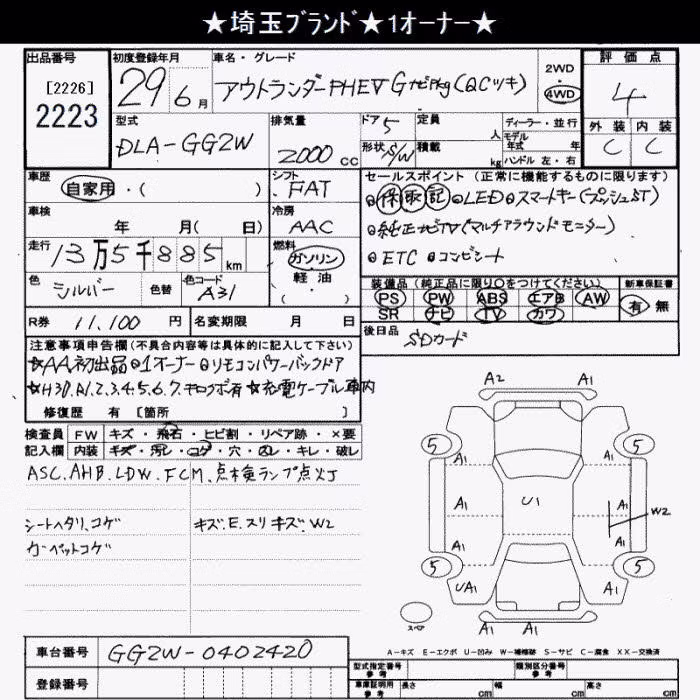 ★埼玉ブランド★1オーナー★
出品番号
[2226]
2223
初度登録年月
29年 6月
車名・グレード
アウトランダーPHEV Gナビpkg(QCツキ)
2WD
・
4WD
評価点
4
外装 内装
C C
型式
DLA-GG2W
排気量
2000 cc
ドア 5
形状 S/W
定員 人
積載 kg
ディーラー・並行
モデル年式 年
ハンドル 左・右
車歴
自家用・( )
シフト
FAT
セールスポイント (正常に機能するものに限ります)
⊙保取記⊙LED⊙スマートキー(プッシュST)
⊙純正ナビTV(マルチアラウンドモニター)
⊙ETC⊙コンビシート
車検
年 月( 日)
冷房
AAC
走行
13万5千885km
燃料
ガソリン
軽油
( )
色
シルバー
色替
色コード
A31
装備品 (純正品に限り○をつけてください)
PS PW ABS エアB AW
SR ナビ TV カワ
新車保証書
有 無
R券 11,100 円
名変期限 月 日
後日品
SDカード
注意事項申告欄 (不具合内容等は具体的に記入して下さい)
★AA初出品⊙1オーナー⊙リモコンパワーバックドア
★H30.R1.2.3.4.5.6.7.キロクボ有★充電ケーブル車内
修復歴 有 [箇所 ]
検査員記入欄
FW キズ・飛石・ヒビ割・リペア跡・×要
内装 キズ・汚レ・コゲ・穴・凹レ・キレ・破レ
ASC.AHB.LDW.FCM.点検ランプ点灯
シートヘタリ、コゲ
キズ.E.スリキズ.W2
カーペットコゲ
A2 A1
5 5
A1 A1
A1 U1 A1 W2
A1 A1
5 5
UA1 A1
スペア
A1 A1
A-キズ E-エクボ U-凹み W-補修跡 S-サビ C-腐食 XX-交換済
車台番号 GG2W-0402420
登録番号
型式指定番号 参考
類別区分番号 参考
車庫証明用 参考
長さ cm
幅 cm
高さ cm